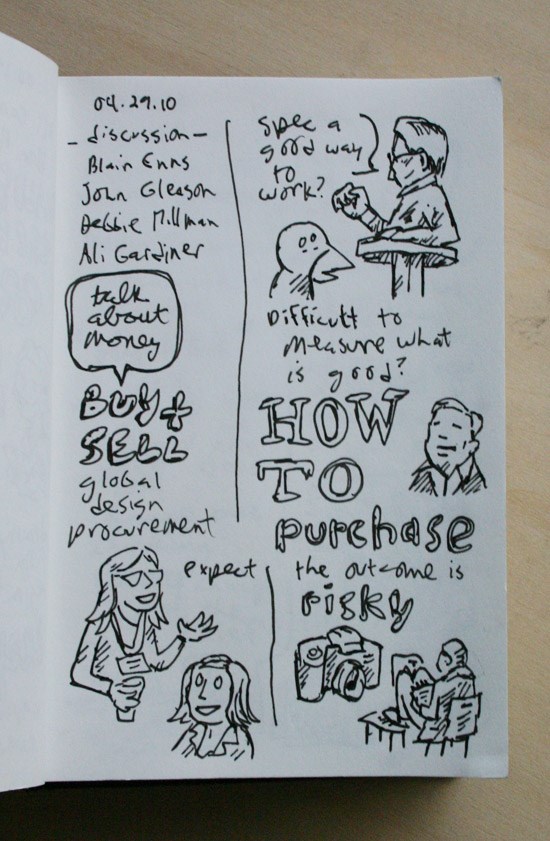 04.29.10
- discussion -
Blair Enns
John Gleason
Debbie Millman
Ali Gardiner
talk
about
money
BUY +
SELL
global
design
procurement
expect
spec a
good way
to
work?
Difficult to
measure what
is good?
HOW
TO
purchase
the outcome is
risky